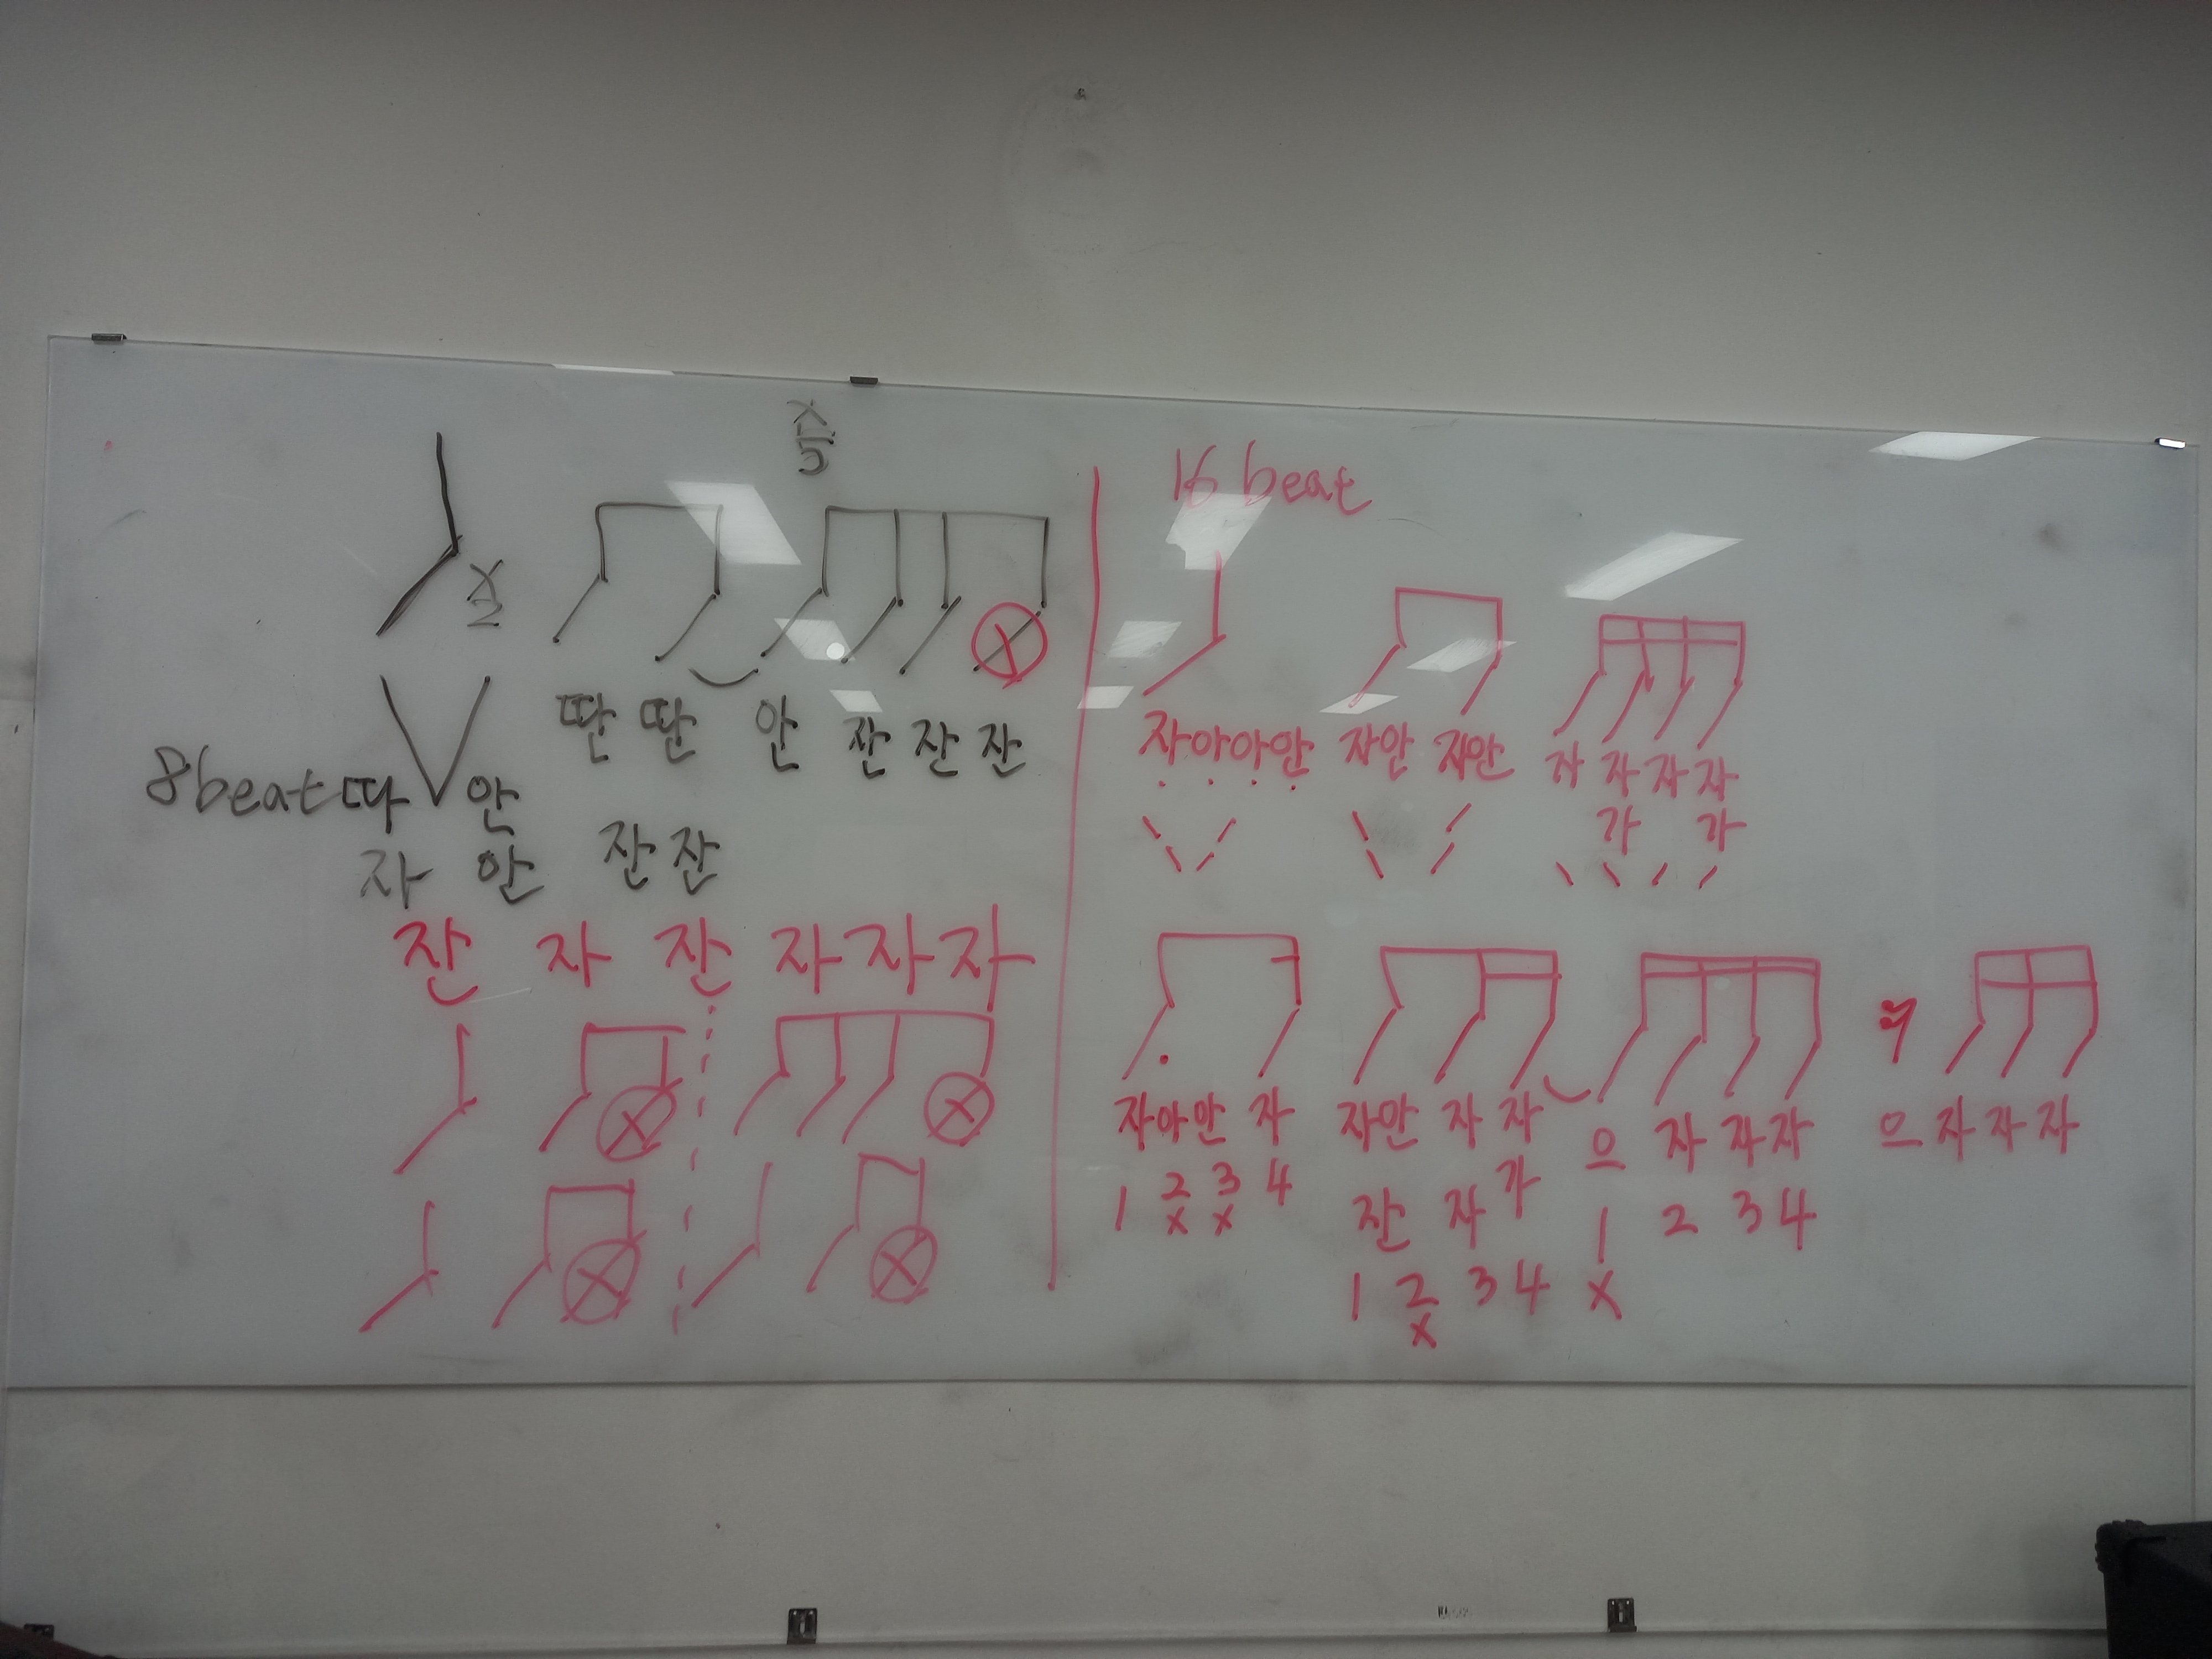 x
5
x
2
딴 딴 안 잔 잔 잔
8beat 따 안
자 안 잔 잔
잔 자 잔 자 자 자
16 beat
자아아안 자안 자안 자 자 자 자
가 가
자아안 자 자안 자 자 으 자 자 자 으 자 자 자
잔 자 가
1 2 3 4 1 2 3 4
x x
1 2 3 4 x
x